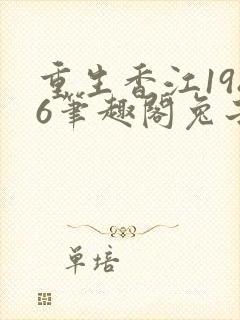 重生香江19
6笔趣阁免
单培